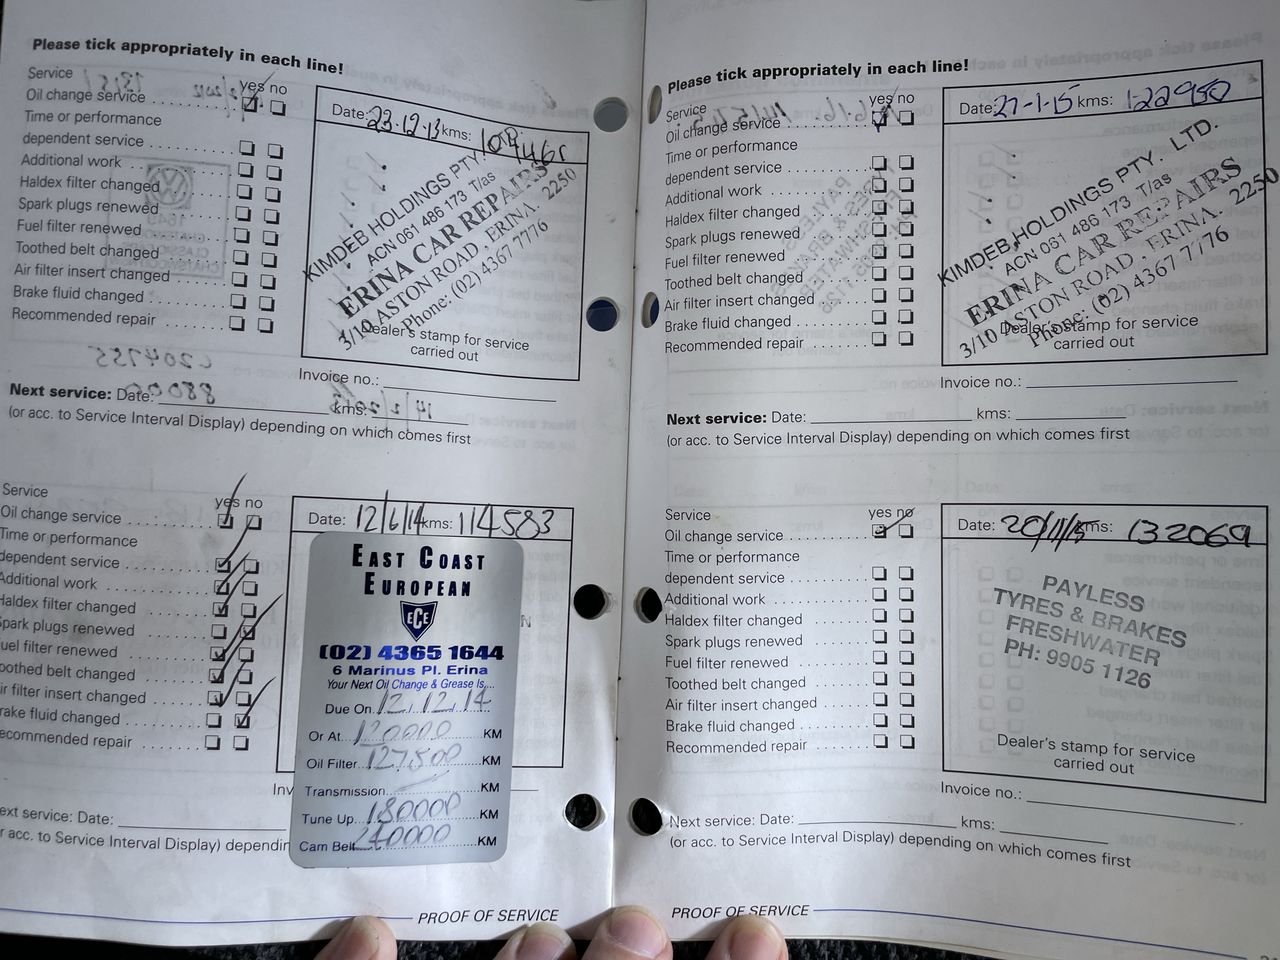 Please tick appropriately in each line!
Service yes no
Oil change service
Time or performance
dependent service
Additional work
Haldex filter changed
Spark plugs renewed
Fuel filter renewed
Toothed belt changed
Air filter insert changed
Brake fluid changed
Recommended repair
Date: 23-12-13 kms:
KIMDEB HOLDINGS PTY.
ACN 061 486 173 T/as
ERINA CAR REPAIRS
3/10 ASTON ROAD, ERINA. 2250
Phone: (02) 4367 7776
Dealer's stamp for service
carried out
Invoice no.:
Next service: Date: kms:
(or acc. to Service Interval Display) depending on which comes first
Service yes no
Oil change service
Time or performance
dependent service
Additional work
Haldex filter changed
Spark plugs renewed
uel filter renewed
oothed belt changed
ir filter insert changed
rake fluid changed
ecommended repair
Date: 12/6/14 kms: 114583
EAST COAST
EUROPEAN
ECE
(02) 4365 1644
6 Marinus Pl. Erina
Your Next Oil Change & Grease Is...
Due On 12.12.14
Or At 120000 KM
Oil Filter 127500 KM
Transmission KM
Tune Up 180000 KM
Cam Belt 240000 KM
Inv
ext service: Date:
r acc. to Service Interval Display) dependin
PROOF OF SERVICE
Please tick appropriately in each line!
Service yes no
Oil change service
Time or performance
dependent service
Additional work
Haldex filter changed
Spark plugs renewed
Fuel filter renewed
Toothed belt changed
Air filter insert changed
Brake fluid changed
Recommended repair
Date: 27-1-15 kms: 122950
KIMDEB HOLDINGS PTY. LTD.
ACN 061 486 173 T/as
ERINA CAR REPAIRS
3/10 ASTON ROAD, ERINA. 2250
Phone: (02) 4367 7776
Dealer's stamp for service
carried out
Invoice no.:
Next service: Date: kms:
(or acc. to Service Interval Display) depending on which comes first
Service yes no
Oil change service
Time or performance
dependent service
Additional work
Haldex filter changed
Spark plugs renewed
Fuel filter renewed
Toothed belt changed
Air filter insert changed
Brake fluid changed
Recommended repair
Date: 20/11/15 kms: 132069
PAYLESS
TYRES & BRAKES
FRESHWATER
PH: 9905 1126
Dealer's stamp for service
carried out
Invoice no.:
Next service: Date: kms:
(or acc. to Service Interval Display) depending on which comes first
PROOF OF SERVICE